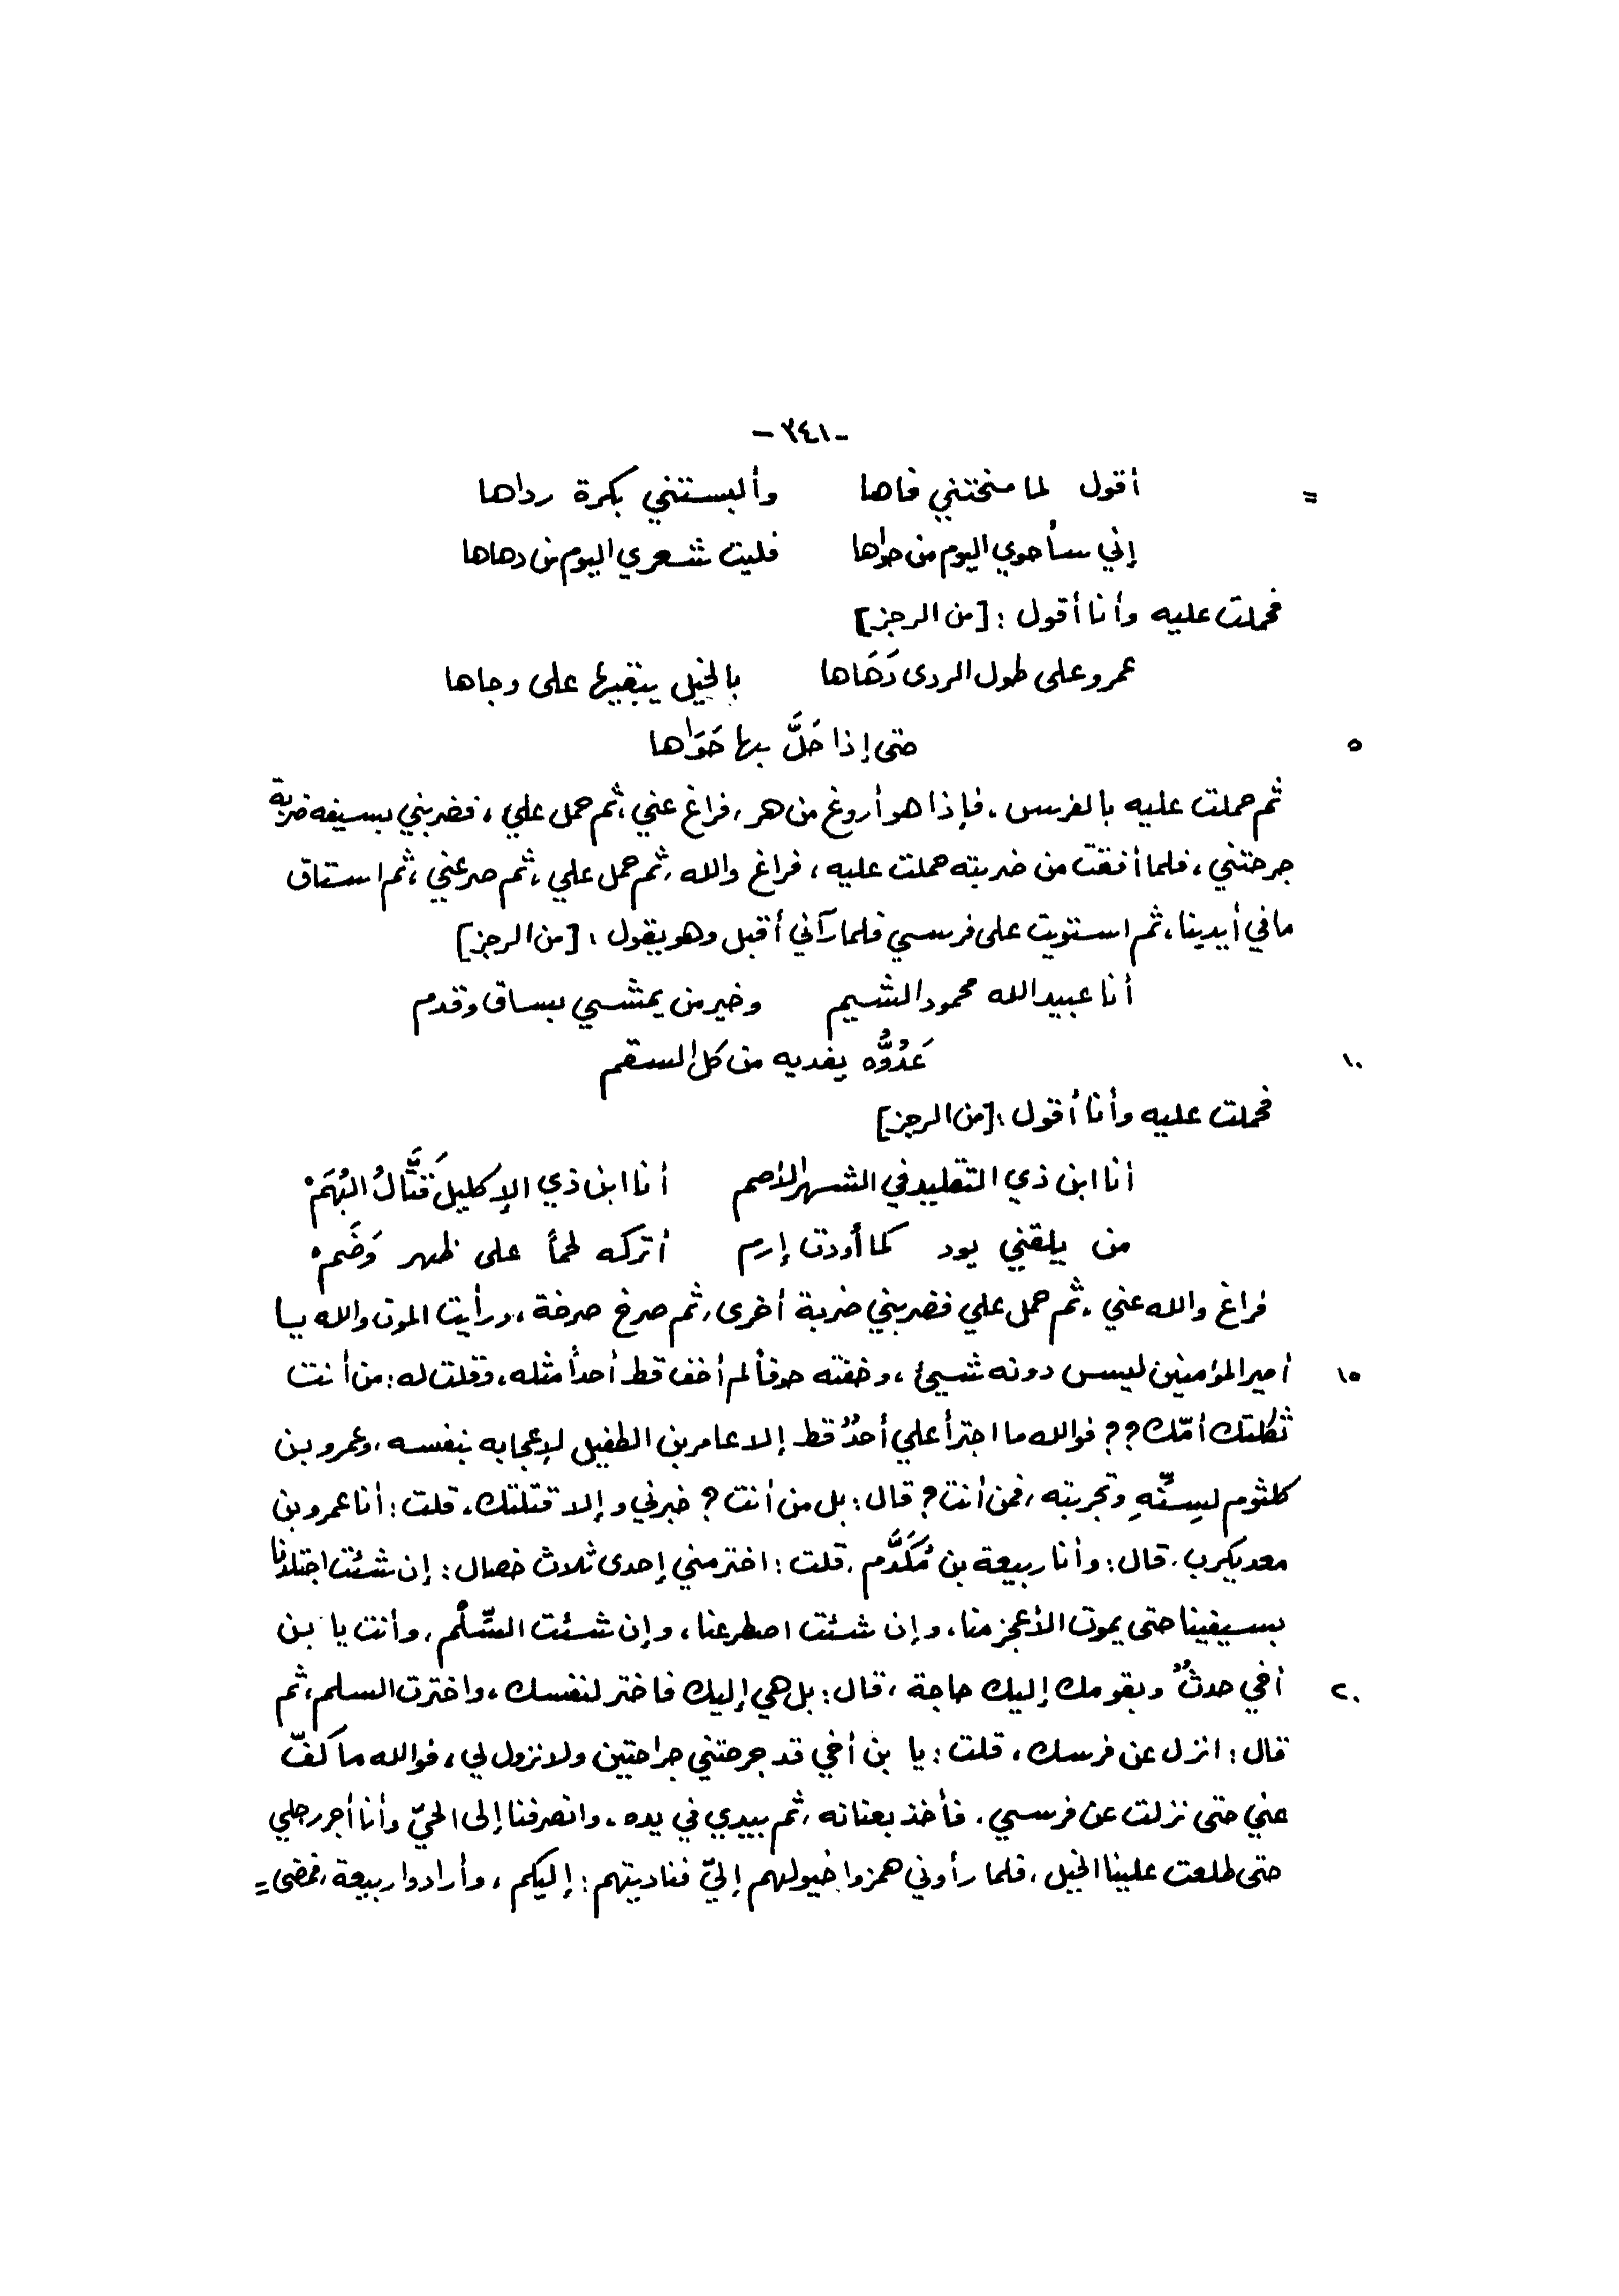 -٣٤١-
= أقول لما منحتني فاها وألبستني بكرة رداها
إني سأحوي اليوم من حواها فليت شعري اليوم من دهاها
فحملت عليه وأنا أقول : [من الرجز]
عمرو على طول الردى دَهَاها بالخيل يتبعها على وجاها
٥ حتى إذا حَلَّ بها حَوَاها
ثم حملت عليه بالفرس ، فإذا هو أروغ من هر ، فراغ عني ، ثم حمل علي ، فضربني بسيفه ضربة
جرحتني ، فلما أفقت من ضربته حملت عليه ، فراغ والله ، ثم حمل علي ، ثم صرعني ، ثم استاق
ما في أيدينا ، ثم استويت على فرسي فلما رآني أقبل وهو يقول : [من الرجز]
أنا عبيد الله محمود الشيم وخير من يمشي بساق وقدم
١٠ عَدُوُّه يفديه من كل السقم
فحملت عليه وأنا أقول : [من الرجز]
أنا ابن ذي التقليد في الشهر الأصم أنا ابن ذي الإكليل قَتَّالُ البُهَمْ
من يلقني يود كما أودت إرم أتركه لحماً على ظهر وَضَمْ
فراغ والله عني ، ثم حمل علي فضربني ضربة أخرى ، ثم صرخ صرخة ، ورأيت الموت والله يا
١٥ أمير المؤمنين ليس دونه شيئ ، وخفته خوفاً لم أخف قط أحداً مثله ، وقلت له : من أنت
ثكلتك أمّك ؟؟ فوالله ما اجترأ علي أحدٌ قط إلا عامر بن الطفيل لإعجابه بنفسه ، وعمرو بن
كلثوم لسِنِّهِ وتجربته ، فمن أنت ؟ قال : بل من أنت ؟ خبرني وإلا قتلتك ، قلت : أنا عمرو بن
معديكرب ، قال : وأنا ربيعة بن مُكَدَّم ، قلت : اختر مني إحدى ثلاث خصال : إن شئت اجتلدنا
بسيفينا حتى يموت الأعجز منا ، وإن شئت اصطرعنا ، وإن شئت السِّلْم ، وأنت يا بن
٢٠ أخي حدثٌ وبقومك إليك حاجة ، قال : بل هي إليك فاختر لنفسك ، واخترت السلم ، ثم
قال : انزل عن فرسك ، قلت : يا بن أخي قد جرحتني جراحتين ولا نزول لي ، فوالله ما كفّ
عني حتى نزلت عن فرسي ، فأخذ بعنانه ، ثم بيدي في يده ، وانصرفنا إلى الحيّ وأنا أجر رجلي
حتى طلعت علينا الخيل ، فلما رأوني همزوا خيولهم إليّ فناديتهم : إليكم ، وأرادوا ربيعة ، فمضى =